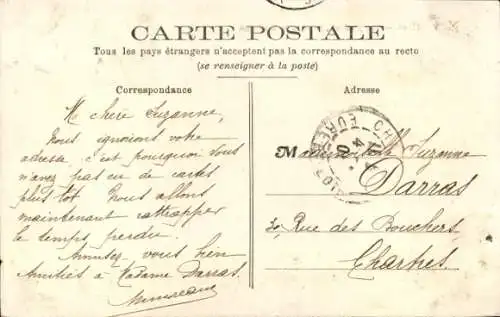 CARTE POSTALE
Tous les pays étrangers n'acceptent pas la correspondance au recto
(se renseigner à la poste)
Correspondance
Adresse
M chère Suzanne,
Nous ignorions votre
adresse, c'est pourquoi vous
n'avez pas eu de cartes
plus tôt. Nous allons
maintenant rattrapper
le temps perdu.
Amusez vous bien
Amitiés à Madame Darras.
Mademoiselle Suzanne
Darras
30, Rue des Bouchers,
Chartres